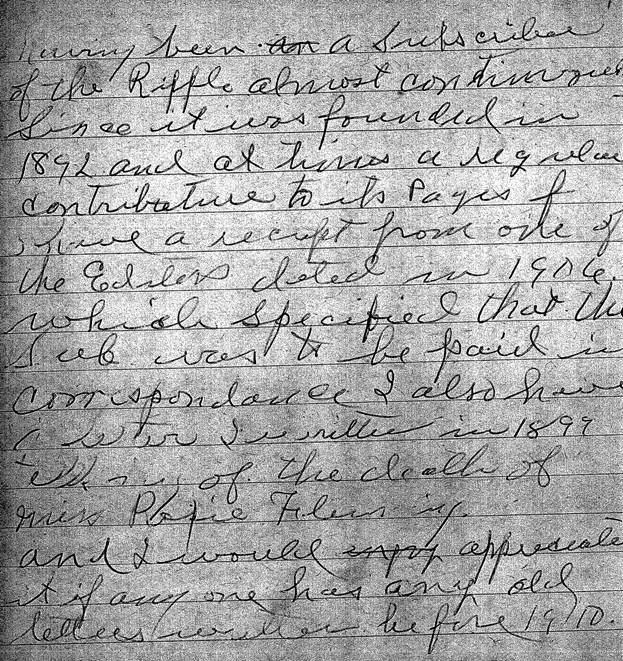 having been an a Subscriber
of the Riffle almost
Since it was founded in
1892 and at times a regular
to its Pages I
have a recipt from one of
the Editors dated in 1906.
which Specified that the
Sub was to be paid in
correspondance I also have
a letter I written in 1899
of the death of
miss Flem ing.
and I would enjoy appreciate
it if any one has any old
letters written before 1910.